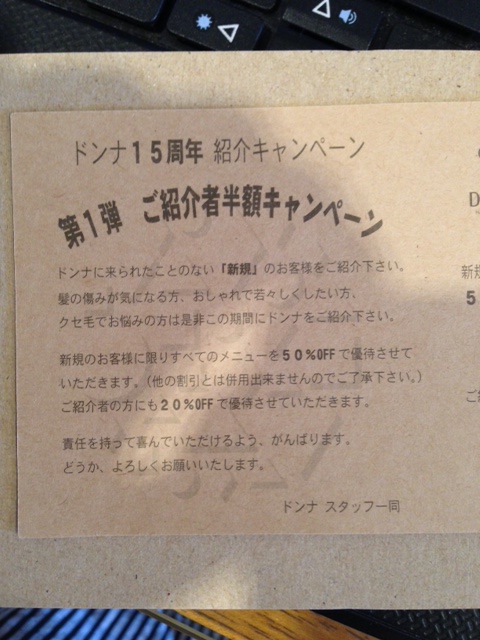 ドンナ15周年 紹介キャンペーン
第1弾 ご紹介者半額キャンペーン
ドンナに来られたことのない「新規」のお客様をご紹介下さい。
髪の傷みが気になる方、おしゃれで若々しくしたい方、
クセ毛でお悩みの方は是非この期間にドンナをご紹介下さい。
新規のお客様に限りすべてのメニューを50%OFFで優待させて
いただきます。(他の割引とは併用出来ませんのでご了承下さい。)
ご紹介者の方にも20%OFFで優待させていただきます。
責任を持って喜んでいただけるよう、がんばります。
どうか、よろしくお願いいたします。
ドンナ スタッフ一同
D
新規
5